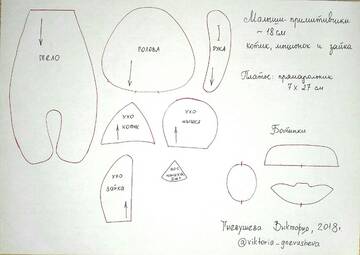 Малыши-примитивчики
~ 18 см
котик, мышонок и зайка
Платье: прямоугольник
7 х 27 см
ТЕЛО
ГОЛОВА
РУКА
УХО
КОТИК
УХО
МЫШКА
УХО
ЗАЙКА
НОС
Ботинки
Гневушева Виктория, 2018г.
@viktoria_gnevusheva